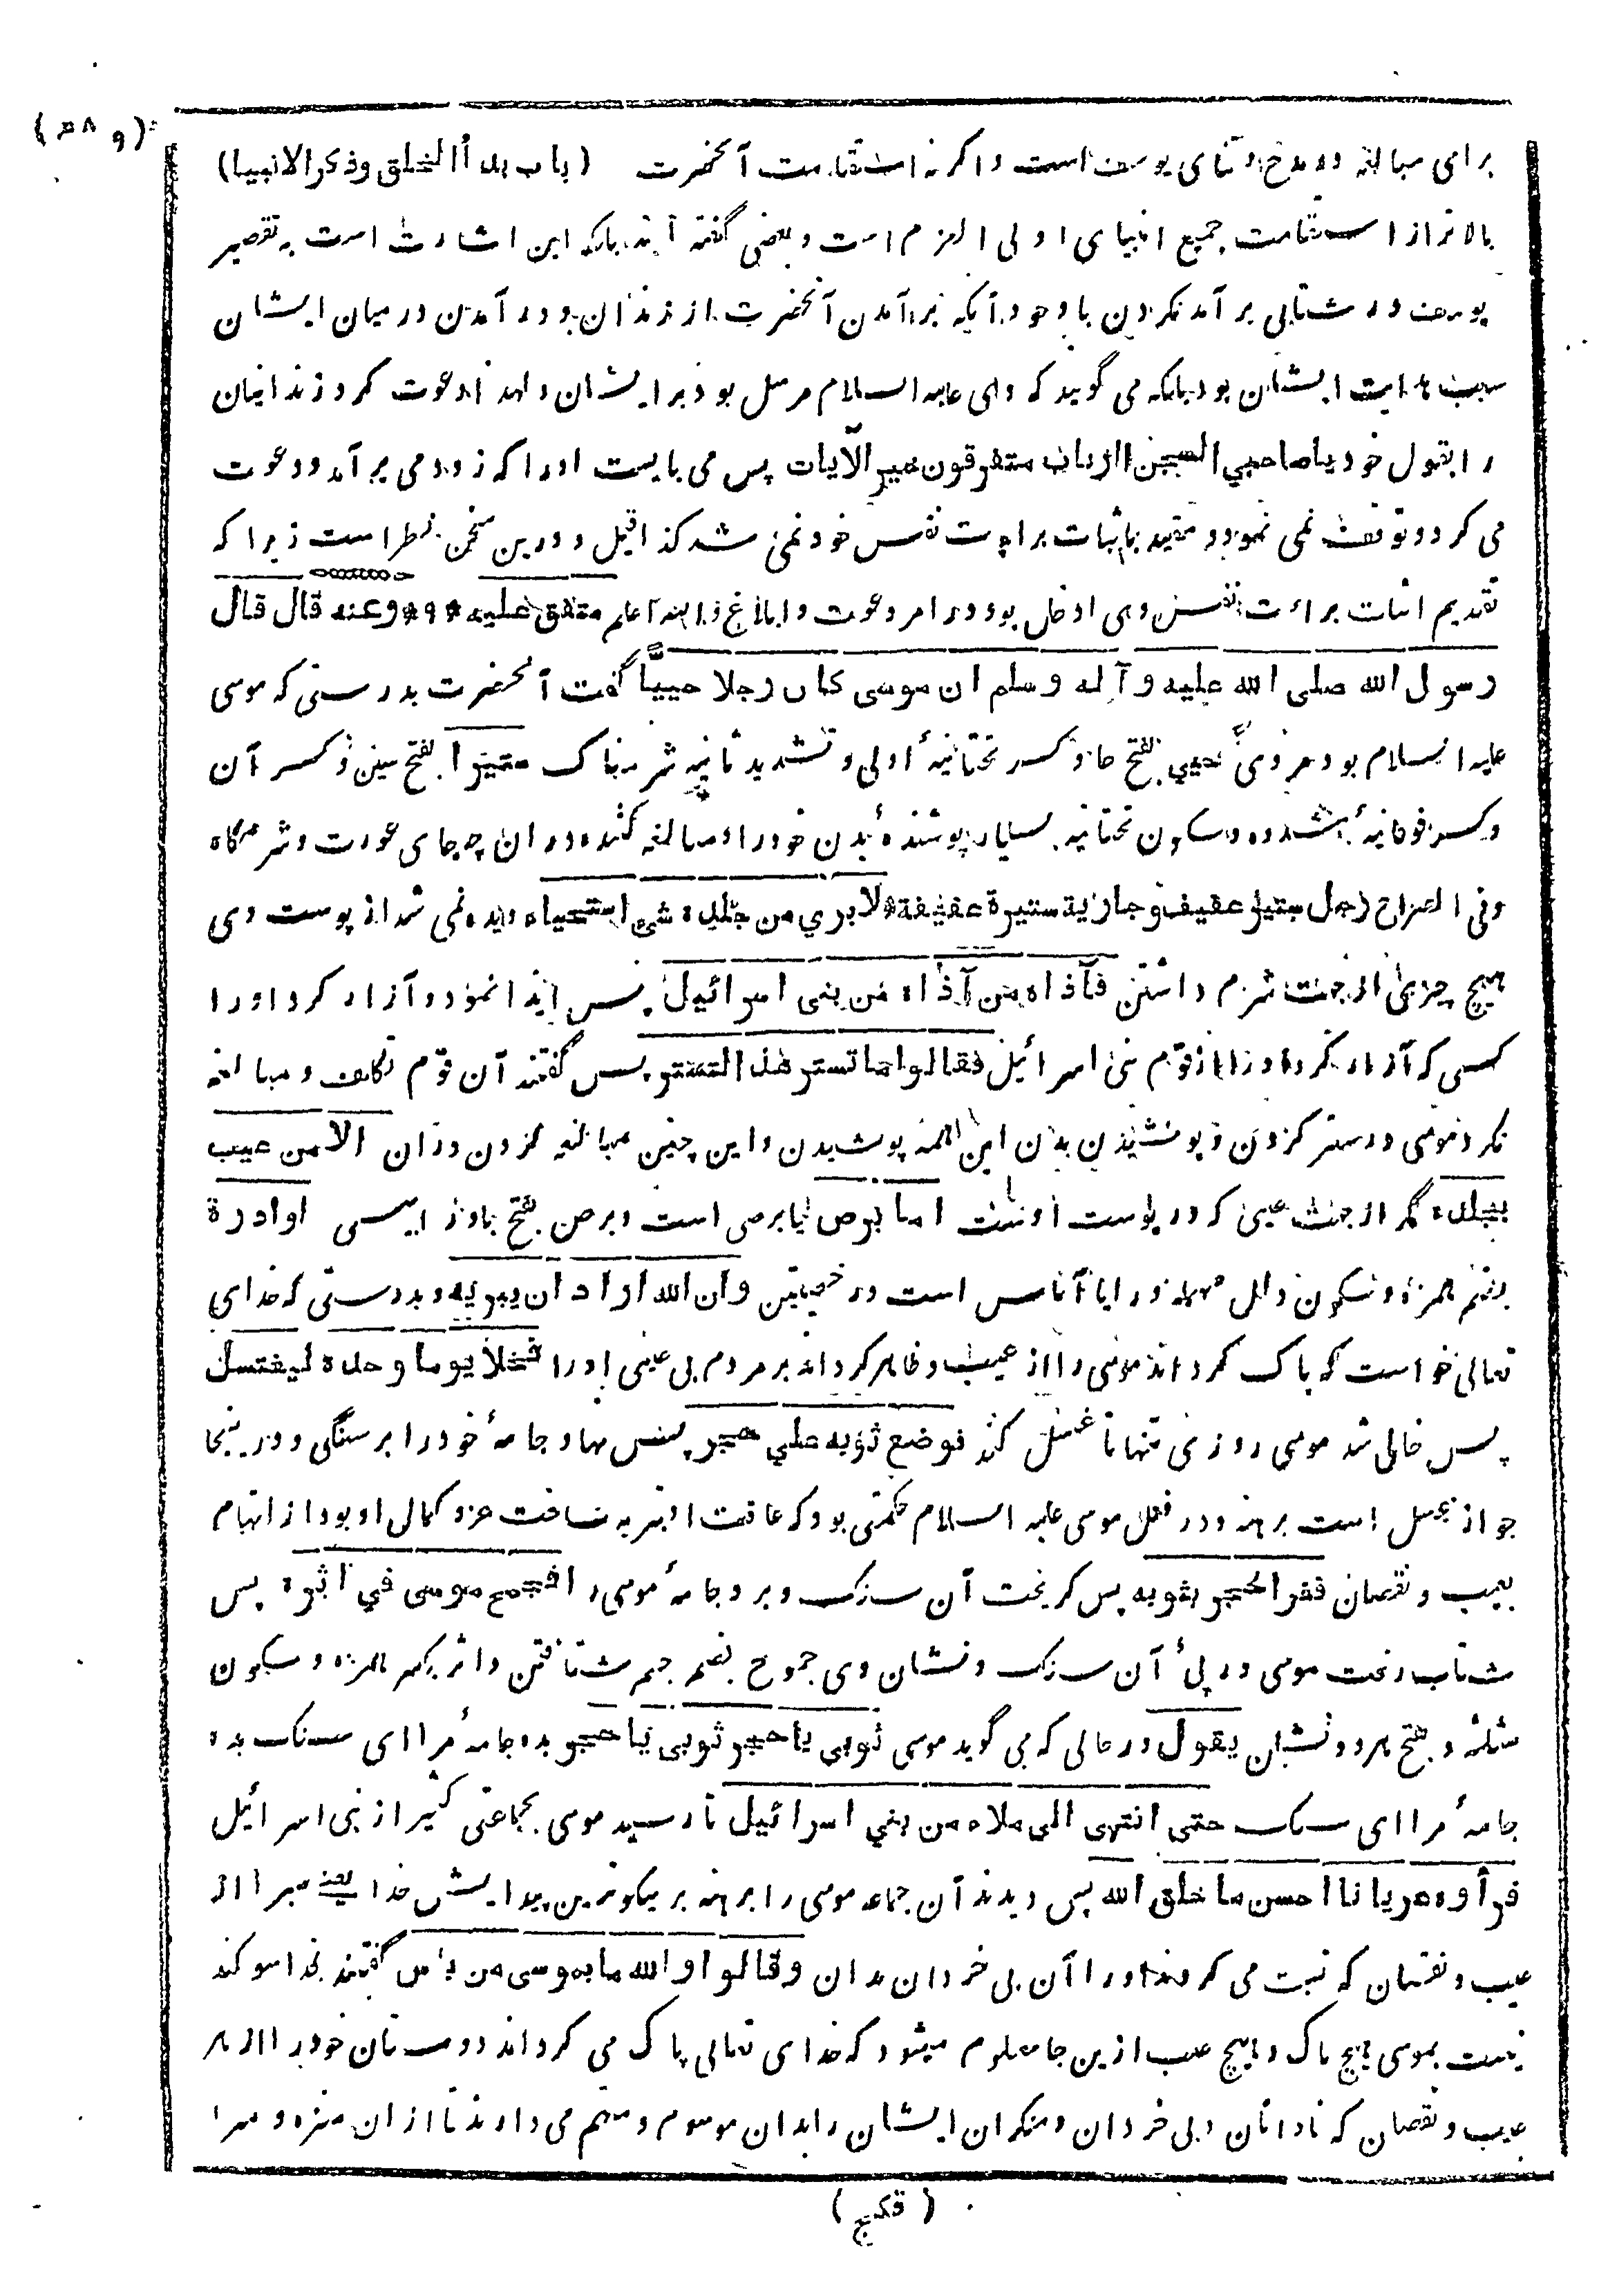 (۴۸۹)
برای مبالغه در مدح و ثنای یوسف است و اگر نه استقامت آنحضرت (باب بدأ الخلق وذکر الانبیا)
بالاتر از استقامت جمیع انبیای اولی العزم است و بعضی گفته اند بلکه این اشارت است به تقصیر
یوسف در شتابی برآمد نکردن با وجود آنکه برآمدن آنحضرت از زندان و در آمدن در میان ایشان
سبب هدایت ایشان بود بلکه می گویند که وی علیه السلام مرسل بود بر ایشان و لهذا دعوت کرد زندانیان
را بقول خود یا صاحبي السجن أارباب متفرقون خیر الآیات پس می بایست او را که زود می برآمد و دعوت
می کرد و توقف نمی نمود و مقید باثبات براءت نفس خود نمی شد کذا قیل و درین سخن نظر است زیرا که
تقدیم اثبات براءت نفس وی ادخل بود در امر دعوت و ابلاغ والله اعلم متفق علیه * و * وعنه قال قال
رسول الله صلی الله علیه و آله وسلم ان موسی کان رجلا حییّا گفت آنحضرت بدرستی که موسی
علیه السلام بود مردی حیي بفتح حا و کسر تحتانیهٔ اولی و تشدید ثانیه شرمناک ستیرا بفتح سین و کسر آن
و کسر فوقانیهٔ مشدده و سکون تحتانیه بسیار پوشندهٔ بدن خود را و مبالغه کننده در ان چه جای عورت و شرمگاه
وفی الصراح رجل ستیر عفیف و جاریة ستیرة عفیفة لا یری من جلده شیء استحیاء دیده نمی شد از پوست وی
هیچ چیزی از جهت شرم داشتن فآذاه من آذاه من بنی اسرائیل پس ایذا نمود و آزار کرد او را
کسی که آزار کرد او را از قوم بنی اسرائیل فقالوا ما تستر هذا التستر پس گفتند آن قوم تکلف و مبالغه
نکرد موسی در ستر کردن و پوشیدن بدن این همه پوشیدن و این چنین مبالغه کردن در ان الا من عیب
بجلده مگر از جهت عیبی که در پوست اوست اما برص یا برصی است و برص بفتح با و را پیسی او ادرة
بضم همزه و سکون دال مهمله و را یا آماس است در خصیتین وان الله اراد ان یبریه و بدرستی که خدای
تعالی خواست که پاک گرداند موسی را از عیب و ظاهر گرداند بر مردم بی عیبی او را فخلا یوما وحده لیغتسل
پس خالی شد موسی روزی تنها تا غسل کند فوضع ثوبه علي حجر پس نهاد جامهٔ خود را بر سنگی و درینجا
جواز غسل است برهنه و در فعل موسی علیه السلام حکمتی بود که عاقبت اش به شناخت عز و کمال او بود از اتهام
بعیب و نقصان ففر الحجر بثوبه پس گریخت آن سنگ و برد جامهٔ موسی را فجمح موسی في اثره پس
شتاب رفت موسی در پیٔ آن سنگ و نشان وی جموح بضم جیم شتافتن و اثر بکسر همزه و سکون
مثلثه و بفتح هر دو نشان یقول در حالی که می گوید موسی ثوبی یا حجر ثوبی یا حجر بده جامهٔ مرا ای سنگ بده
جامهٔ مرا ای سنگ حتی انتهی الی ملاء من بني اسرائیل تا رسید موسی بجماعتی کثیر از بنی اسرائیل
فرأوه عریانا احسن ما خلق الله پس دیدند آن جماعه موسی را برهنه بر نیکوترین پیدایش خدا یعنی مبرا از
عیب و نقصان که نسبت می کردند او را آن بی خردان بدان وقالوا والله ما بموسی من بأس گفتند بخدا سوگند
نیست بموسی هیچ باک و هیچ عیب ازین جا معلوم میشود که خدای تعالی پاک می گرداند دوستان خود را از هر
عیب و نقصان که نادانان و بی خردان و منکران ایشان را بدان موسوم و متهم می دارند تا از ان منزه و مبرا
(قکج)